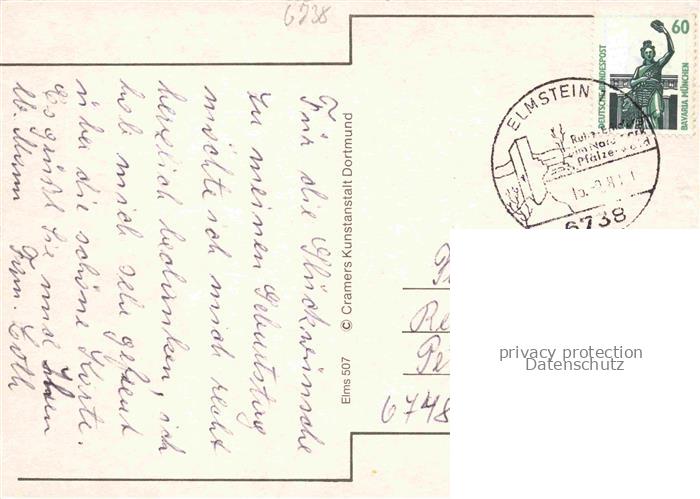 6738
Für die Glückwünsche
zu meinem Geburtstag
möchte ich mich recht
herzlich bedanken, ich
hab mich sehr gefreut
über die schöne Karte.
Es grüßt Sie und Ihren
lb. Mann
Fam.
Elms 507 © Cramers Kunstanstalt Dortmund
60
DEUTSCHE BUNDESPOST
BAVARIA MÜNCHEN
ELMSTEIN
im
Pfälzerwald
6738
Re
Pe
6748
privacy protection
Datenschutz